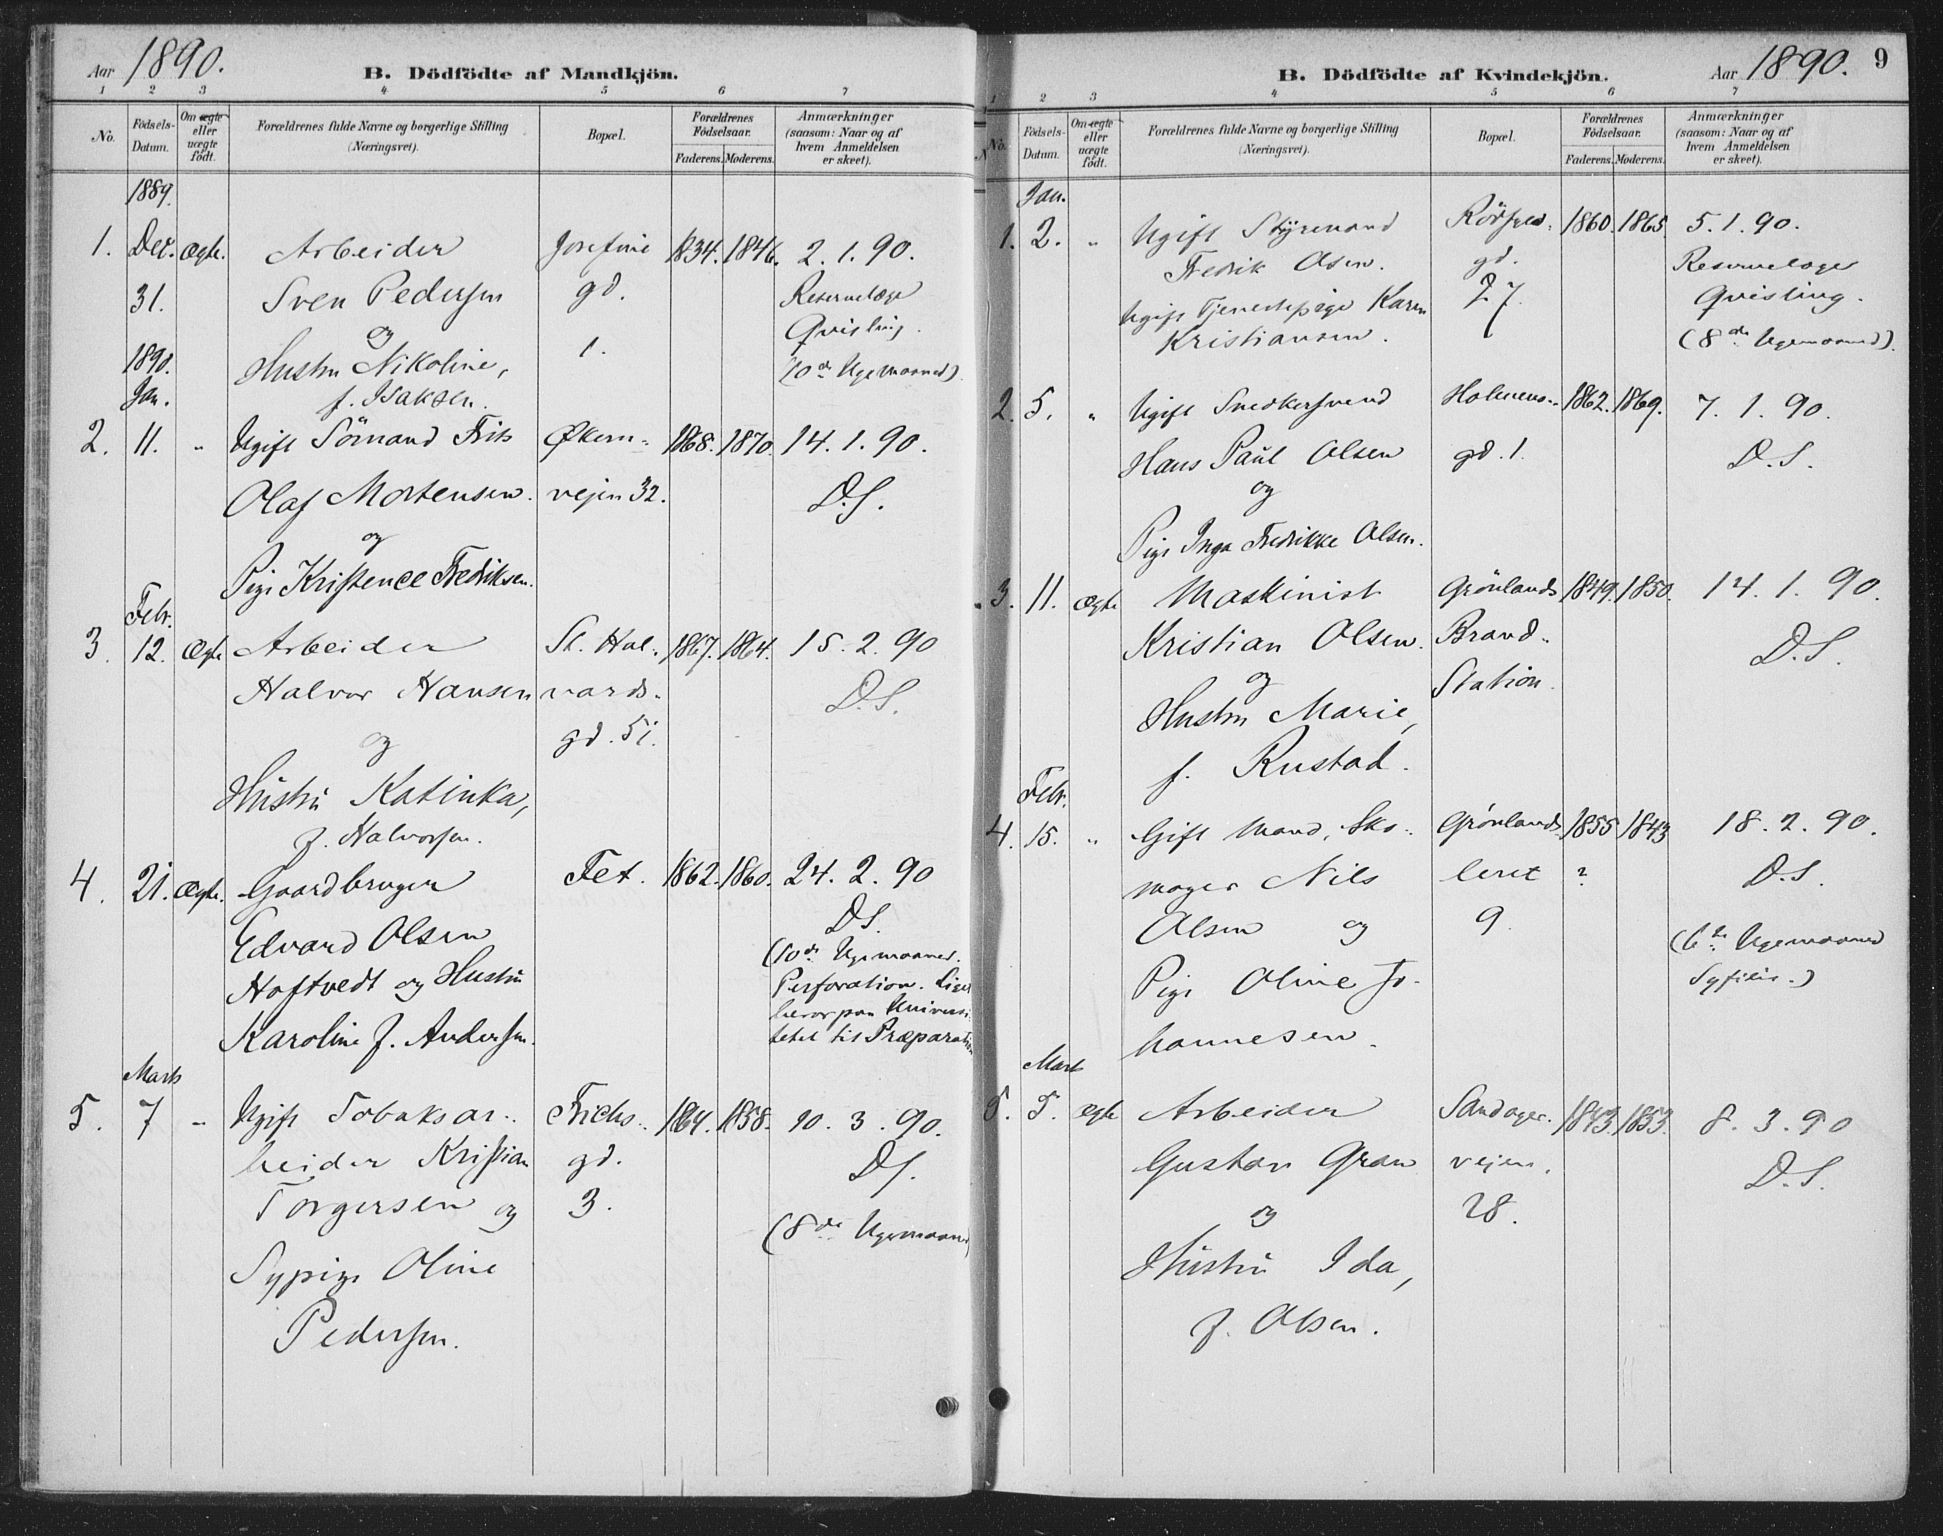 Aar 1890.
B. Dödfödte af Mandkjön.
1 2 3 4 5 6 7
No.
Födsels-
Datum.
Om ægte
eller
uægte
født.
Forældrenes fulde Navne og borgerlige Stilling
(Næringsvei).
Bopæl.
Forældrenes
Födselsaar.
Faderens. Moderens.
Anmærkninger
(saasom: Naar og af
hvem Anmeldelsen
er skeet).
1889.
1. Dec. ægte. Arbeider Josefine 1834. 1846. 2. 1. 90.
31. Sven Pedersen gd. Reservelæge
og Qvisling.
1890. Hustru Nikoline, 1. (10de Ugemaaned).
Jan. f. Isaksen.
2. 11. " Ugift Sömand Frits Økern- 1868. 1870. 14. 1. 90.
Olaf Mortensen. vejen 32. D.S.
og
Pige Kristence Fredriksen.
Febr.
3. 12. Ægte Arbeider St. Hal- 1867. 1864. 15. 2. 90
Halvor Hansen vards- D.S.
og gd. 51.
Hustru Katinka,
f. Halvorsen.
4. 21. Ægte. Gaardbruger Fet. 1862. 1860. 24. 2. 90
Edvard Olsen D.S.
Hoftvedt og Hustru (10de Ugemaaned.
Karoline f. Andersen. Perforation. Liget
beror paa Universi-
tetet til Præparation
Marts
5. 7 " Ugift Tobaksar- Frichs- 1864. 1858. 10. 3. 90.
beider Kristian gd. D.S.
Torgersen og 3. (8de Ugemaaned)
Sypige Oline
Pedersen.
B. Dödfödte af Kvindekjön. Aar 1890. 9
1 2 3 4 5 6 7
No.
Födsels-
Datum.
Om ægte
eller
uægte
født.
Forældrenes fulde Navne og borgerlige Stilling
(Næringsvei).
Bopæl.
Forældrenes
Födselsaar.
Faderens. Moderens.
Anmærkninger
(saasom: Naar og af
hvem Anmeldelsen
er skeet).
Jan.
1. 2. " Ugift Styrmand 1860. 1865. 5. 1. 90.
Fredrik Olsen. gd. Reservelæge
Ugift Tjenestepige Karen 27. Qvisling.
Kristiansen. (8de Ugemaaned).
2. 5. " Ugift Snedkersvend Holmens- 1862. 1869. 7. 1. 90.
Hans Paul Olsen gd. 1. D.S.
og
Pige Inga Fredrikke Olsen.
3. 11. ægte Maskinist Grönlands 1849. 1850. 14. 1. 90.
Kristian Olsen. Brand- D.S.
og Station.
Hustru Marie,
f. Rustad.
Febr.
4. 15. " Gift Mand, Sko- Grönlands 1855 1843 18. 2. 90.
mager Nils leret ? D.S.
Olsen og 9. (6te Ugemaaned
Pige Oline Jo- Syfilis.)
hannesen.
Marts
5. 5. ægte Arbeider Sandager- 1843. 1853. 8. 3. 90
Gustav Gran vejen. D.S.
og 28.
Hustru Ida,
f. Olsen.